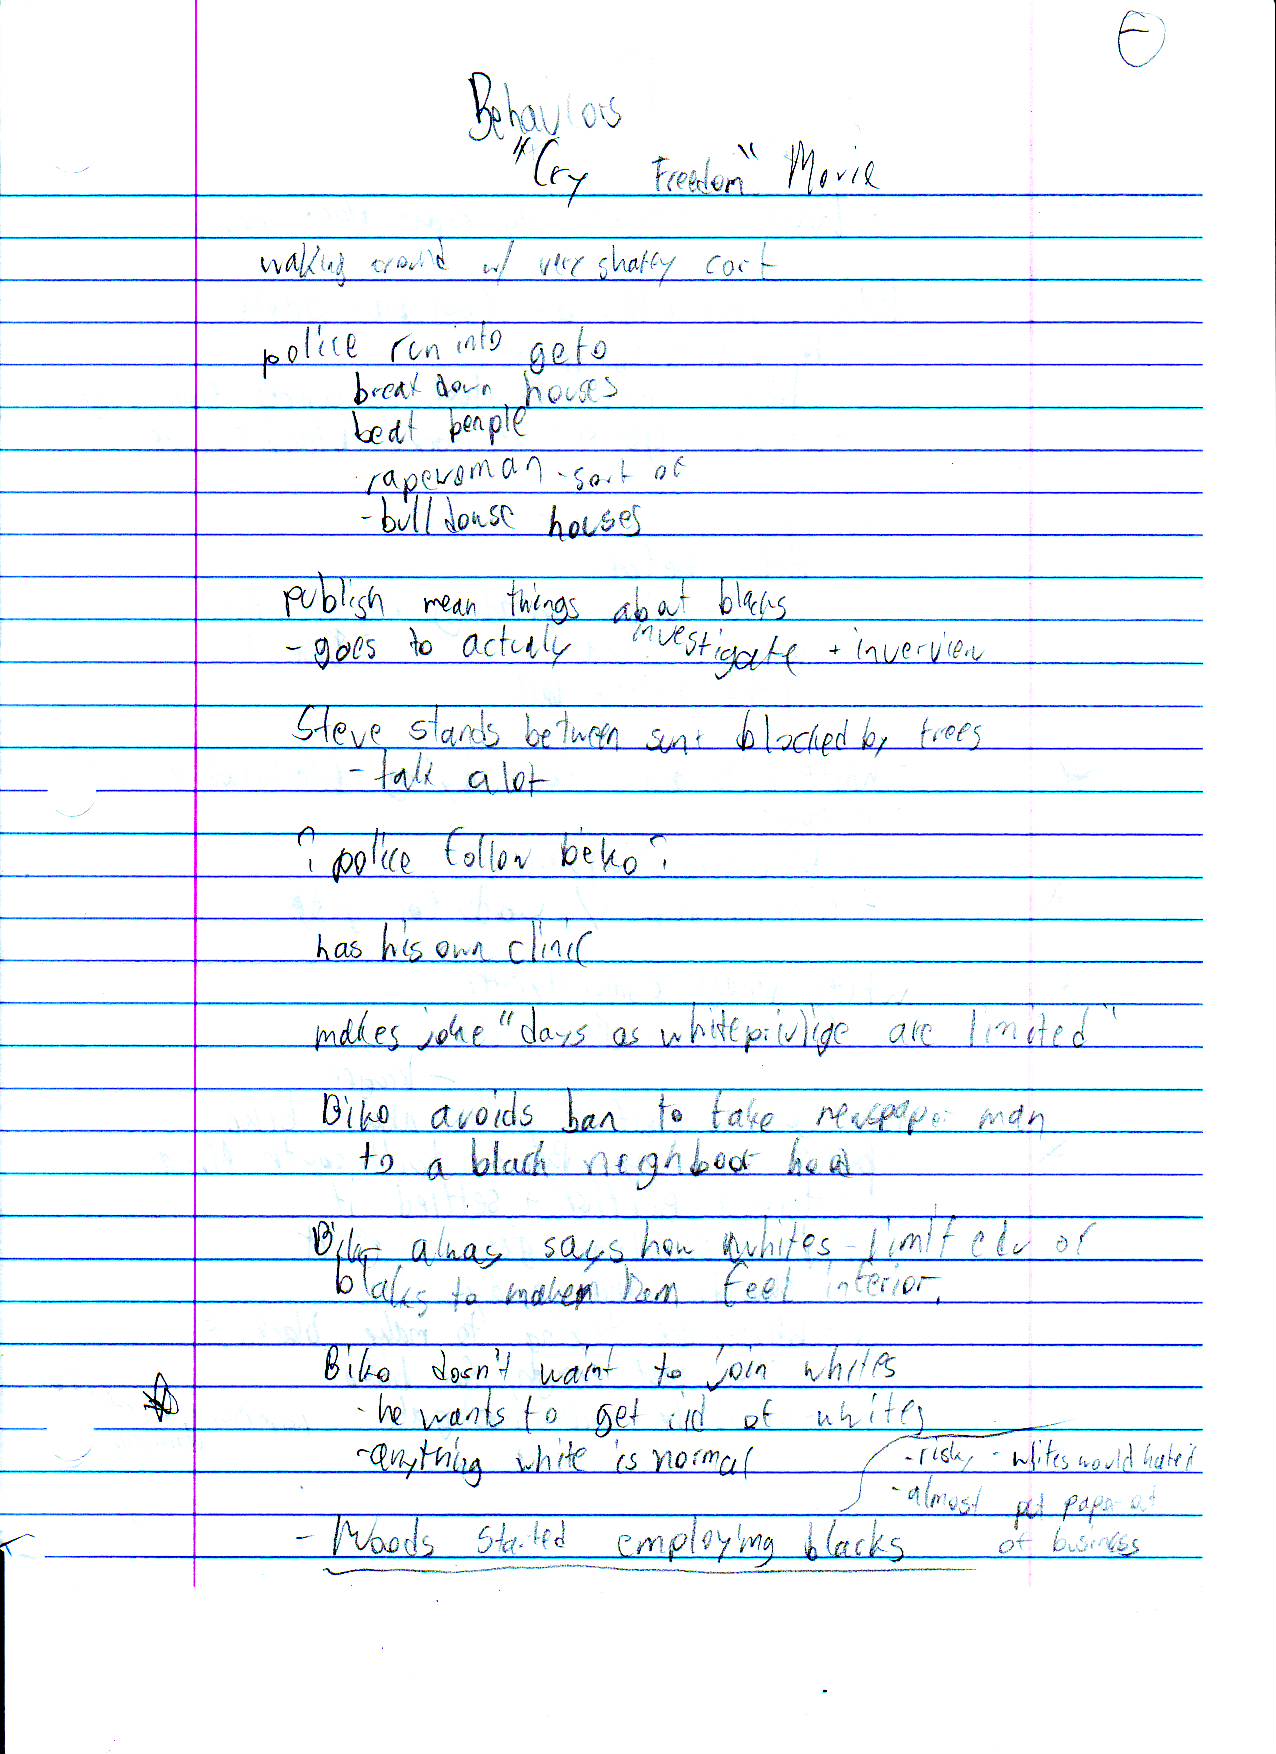 Behaviors
"Cry Freedom" Movie
waking around w/ very shatty coat
police run into geto
break down houses
beat peaple
rape woman - sort of
- bull douse houses
publish mean things about blacks
- goes to actualy investigate + inverview
Steve stands between sun + blocked by trees
- talk alot
? police follow beko ?
has his own clinic
makes joke "days as whiteprivlige are limited"
Biko avoids ban to take newspaper man
to a black neighboor hood
Biko alway says how whites limit edu of
blaks to maken them feel inferior.
Biko dosn't waint to join whites
- he wants to get rid of whites
- anything white is normal
- risky - whites would hated
- almost put paper out
of business
- Woods started employing blacks